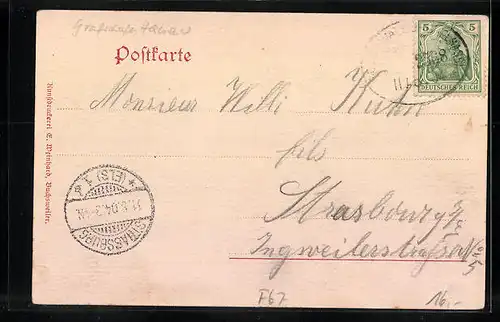 Postkarte
5
DEUTSCHES REICH
Monsieur Willi Kuhn
fils
Strasbourg i/E
Ingweilerstrasse No 5
STRASSBURG
11.8.04.3-4N.
* (ELS) 1 d
Kunstdruckerei E. Weinhard, Buchsweiler.
F67
16,-